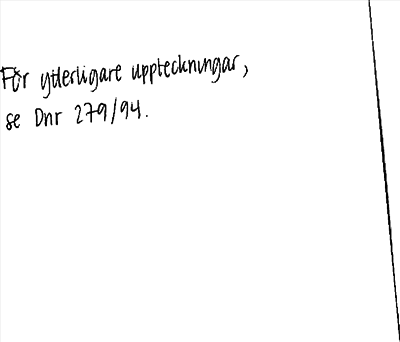 För ytterligare uppteckningar,
se Dnr 279/94.